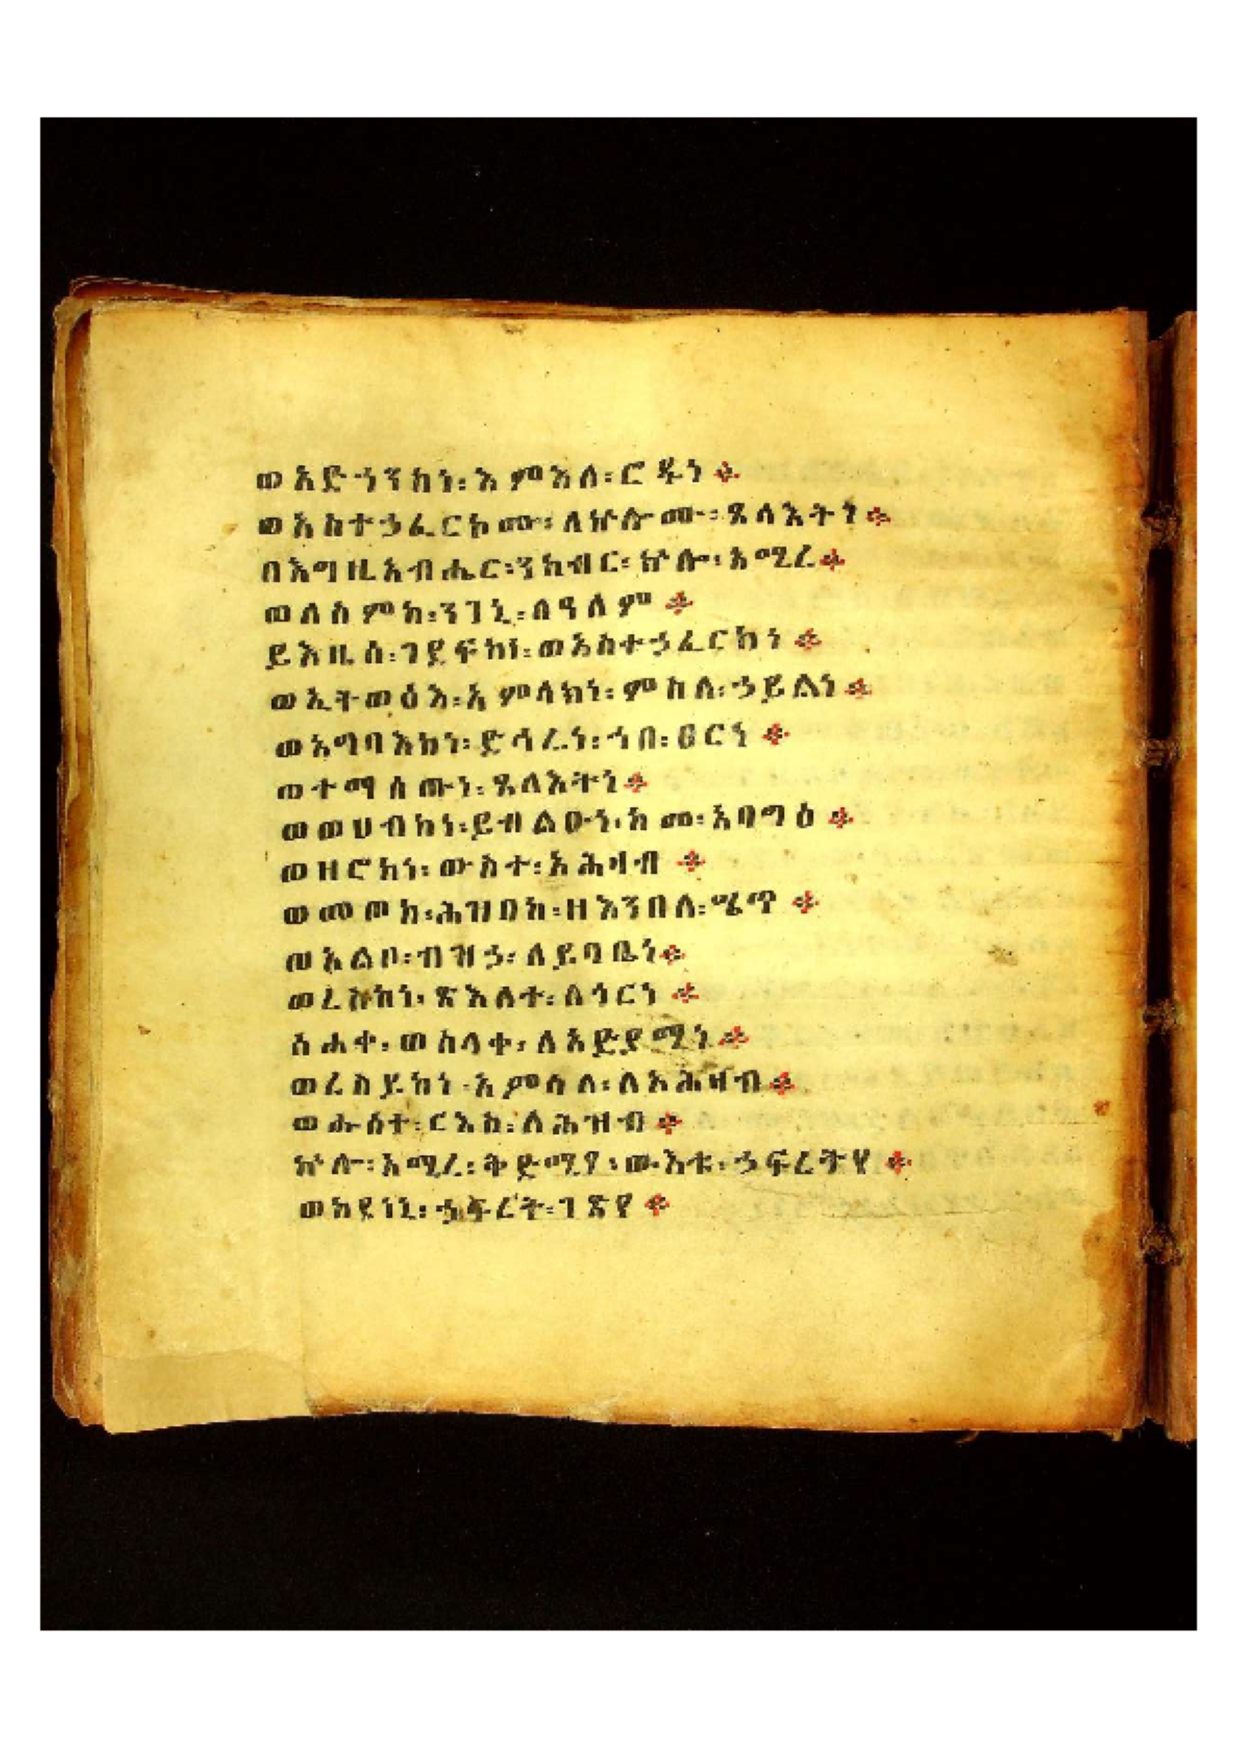 ወአድኀንከነ፡ እምእለ፡ ሮዱነ ፨
ወአስተኃፈርኮሙ፡ ለኵሎሙ፡ ጸላእትነ ፨
በእግዚአብሔር፡ ንከብር፡ ኵሎ፡ አሚረ ፨
ወለስምከ፡ ንገኒ፡ ለዓለም ፨
ይእዜሰ፡ ገደፍከነ፡ ወአስተኃፈርከነ ፨
ወኢትወፅእ፡ አምላክነ፡ ምስለ፡ ኃይልነ ፨
ወአግባእከነ፡ ድኅሬነ፡ ኀበ፡ ፀርነ ፨
ወተማሰጡነ፡ ጸላእትነ ፨
ወወሀብከነ፡ ይብልዑነ፡ ከመ፡ አባግዕ ፨
ወዘሮከነ፡ ውስተ፡ አሕዛብ ፨
ወመጦከ፡ ሕዝበከ፡ ዘእንበለ፡ ሤጥ ፨
ወአልቦ፡ ብዝኃ፡ ለይባቤነ ፨
ወረሰከነ፡ ጽእለተ፡ ለጎርነ ፨
ሰሐቀ፡ ወስላቀ፡ ለአድያሚነ ፨
ወረሰይከነ፡ አምሳለ፡ ለአሕዛብ ፨
ወሑሰተ፡ ርእስ፡ ለሕዝብ ፨
ኵሎ፡ አሚረ፡ ቅድሜየ፡ ውእቱ፡ ኃፍረትየ ፨
ወከደነኒ፡ ኃፍረት፡ ገጽየ ፨